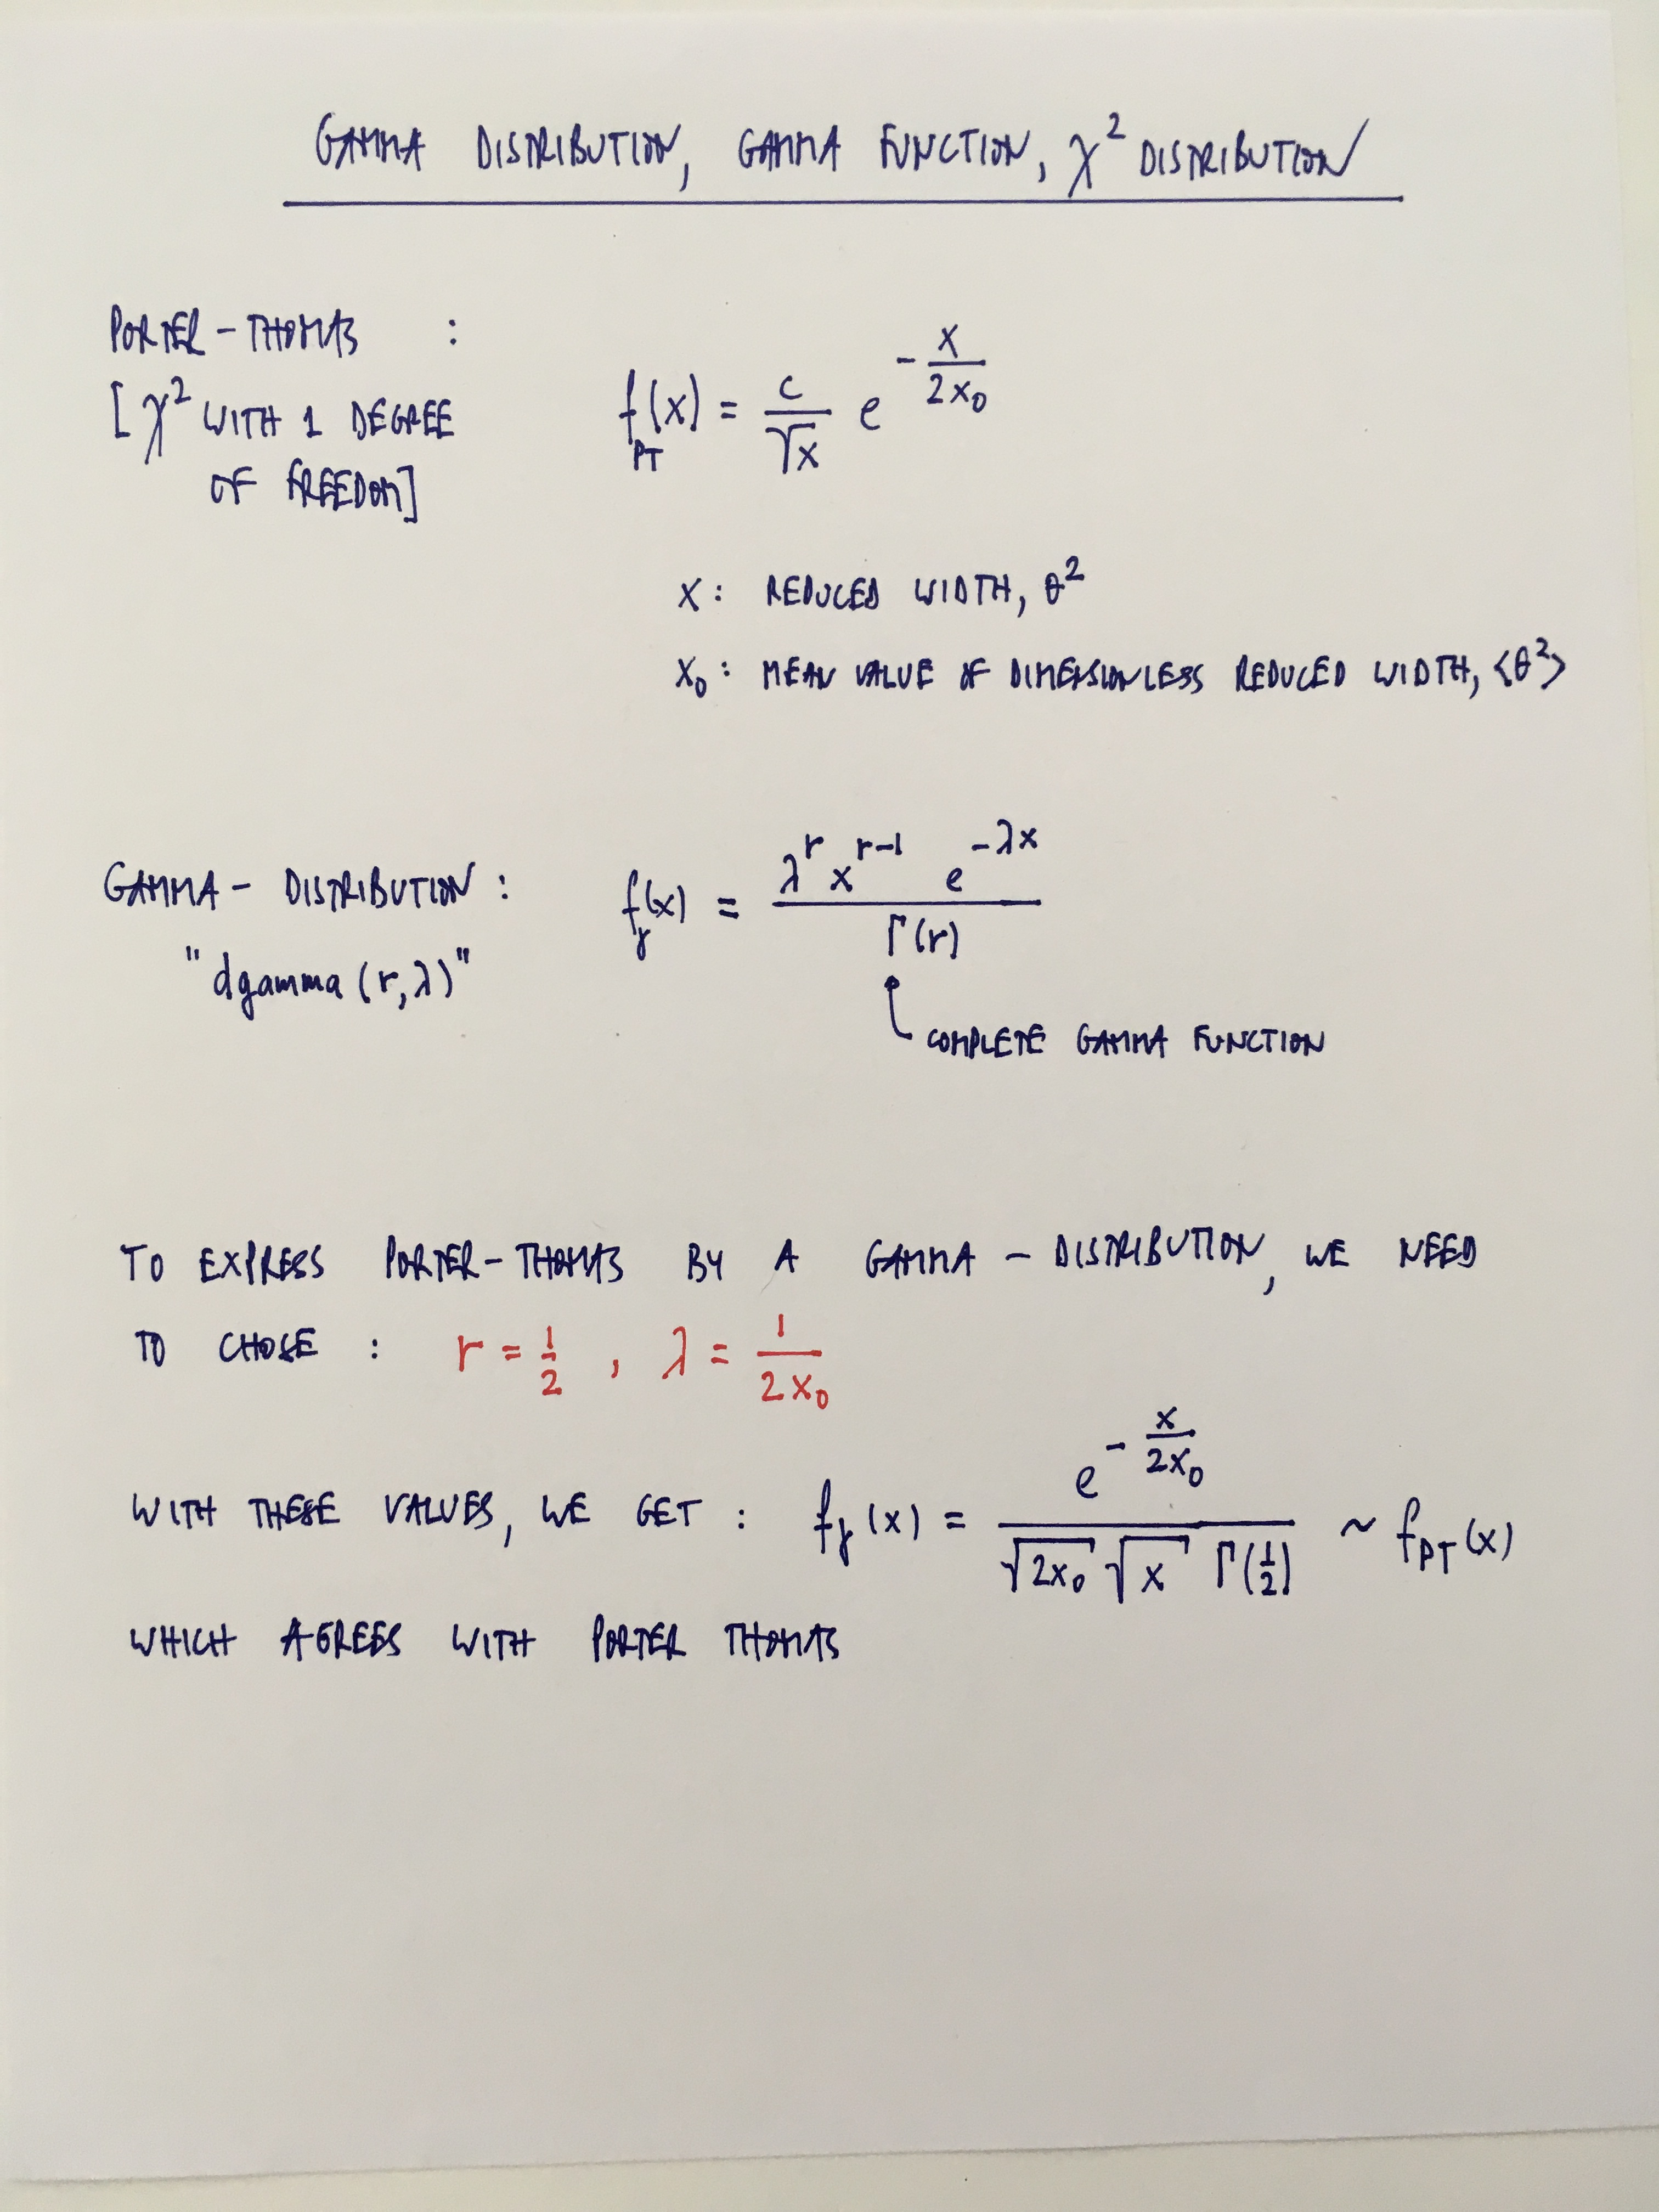 GAMMA DISTRIBUTION, GAMMA FUNCTION, χ² DISTRIBUTION
PORTER-THOMAS :
[χ² WITH 1 DEGREE
OF FREEDOM]
f_PT(x) = c/√x e^(-x/(2x₀))
x: REDUCED WIDTH, θ²
x₀: MEAN VALUE OF DIMENSIONLESS REDUCED WIDTH, <θ²>
GAMMA - DISTRIBUTION :
"dgamma (r,λ)"
f_γ(x) = λ^r x^(r-1) e^(-λx) / Γ(r)
COMPLETE GAMMA FUNCTION
TO EXPRESS PORTER-THOMAS BY A GAMMA - DISTRIBUTION, WE NEED
TO CHOSE : r = 1/2 , λ = 1/(2x₀)
WITH THESE VALUES, WE GET : f_γ(x) = e^(-x/(2x₀)) / (√(2x₀) √x Γ(1/2)) ~ f_PT(x)
WHICH AGREES WITH PORTER THOMAS